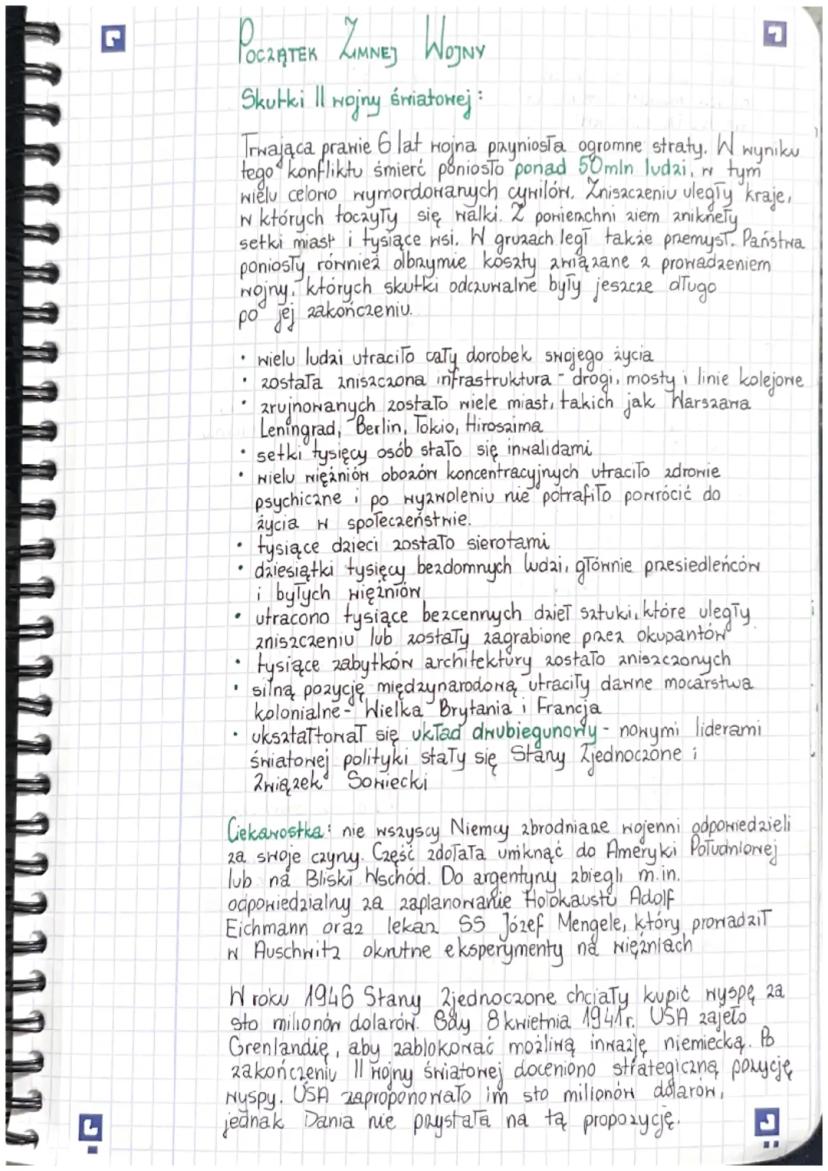 POCZĄTEK ZIMNEJ WOJNY
Skutki II wojny światowej:
Trwająca prawie 6 lat wojna przyniosła ogromne straty. W wyniku
tego konfliktu śmierć poniosło ponad 50mln ludzi, w tym
wielu celowo wymordowanych cywilów. Zniszczeniu uległy kraje,
w których toczyły się walki. Z powierzchni ziem zniknęły
setki miast i tysiące wsi. W gruzach legł także przemysł. Państwa
poniosły również olbrzymie koszty związane z prowadzeniem
wojny, których skutki odczuwalne były jeszcze długo
po jej zakończeniu.
• wielu ludzi utraciło cały dorobek swojego życia
• została zniszczona infrastruktura - drogi, mosty i linie kolejowe
• zrujnowanych zostało wiele miast, takich jak Warszawa
Leningrad, Berlin, Tokio, Hiroszima
• setki tysięcy osób stało się inwalidami
• wielu więźniów obozów koncentracyjnych utraciło zdrowie
psychiczne i po wyzwoleniu nie potrafiło powrócić do
życia w społeczeństwie.
• tysiące dzieci zostało sierotami
• dziesiątki tysięcy bezdomnych ludzi, głównie przesiedleńców
i byłych więźniów
• utracono tysiące bezcennych dzieł sztuki, które uległy
zniszczeniu lub zostały zagrabione przez okupantów
• tysiące zabytków architektury zostało zniszczonych
• silną pozycję międzynarodową utraciły dawne mocarstwa
kolonialne - Wielka Brytania i Francja
• ukształtował się układ dwubiegunowy - nowymi liderami
światowej polityki stały się Stany Zjednoczone i
Związek Sowiecki
Ciekawostka: nie wszyscy Niemcy zbrodniarze wojenni odpowiedzieli
za swoje czyny. Część zdołała umknąć do Ameryki Południowej
lub na Bliski Wschód. Do argentyny zbiegli m.in.
odpowiedzialny za zaplanowanie Holokaustu Adolf
Eichmann oraz lekarz SS Józef Mengele, który prowadził
w Auschwitz okrutne eksperymenty na więźniach
W roku 1946 Stany Zjednoczone chciały kupić wyspę za
sto milionów dolarów. Gdy 8 kwietnia 1941r. USA zajęło
Grenlandię, aby zablokować możliwą inwazję niemiecką. Po
zakończeniu II wojny światowej doceniono strategiczną pozycję
wyspy. USA zaproponowało im sto milionów dolarów,
jednak Dania nie przystała na tą propozycję.